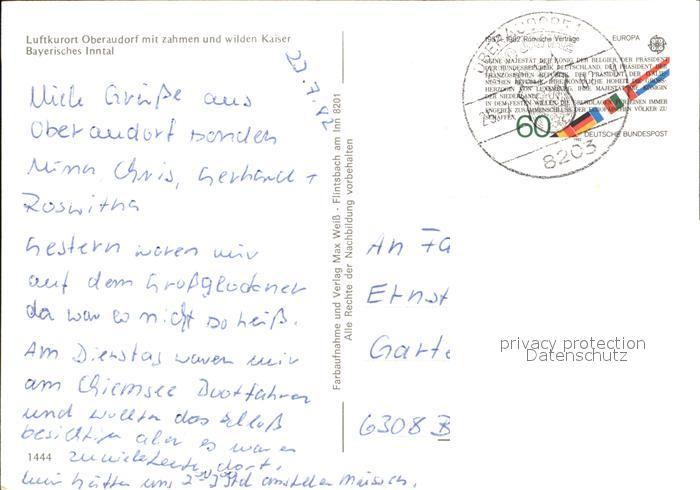 Luftkurort Oberaudorf mit zahmen und wilden Kaiser
Bayerisches Inntal
Viele Grüße aus
Oberaudorf senden
Nina, Chris, Gerhard +
Roswitha
Gestern waren wir
auf dem Großglockner
da war es nicht so heiß.
Am Dienstag waren wir
am Chiemsee Bootfahren
und wollten das Schloß
besichtigen aber es waren
zuviele Leute dort,
wir hätten uns 2-3 Std anstellen müssen.
1444
Farbaufnahme und Verlag Max Weiß - Flintsbach am Inn 8201
Alle Rechte der Nachbildung vorbehalten
1957-1982 Römische Verträge EUROPA
SEINE MAJESTÄT DER KÖNIG DER BELGIER, DER PRÄSIDENT
DER BUNDESREPUBLIK DEUTSCHLAND, DER PRÄSIDENT DER
FRANZÖSISCHEN REPUBLIK, DER PRÄSIDENT DER ITALIE-
NISCHEN REPUBLIK, IHRE KÖNIGLICHE HOHEIT DIE GROSS-
HERZOGIN VON LUXEMBURG, IHRE MAJESTÄT DIE KÖNIGIN
DER NIEDERLANDE
60
DEUTSCHE BUNDESPOST
OBERAUDORF
8203
An Fa
Ernst
Garte
6308 B
privacy protection
Datenschutz